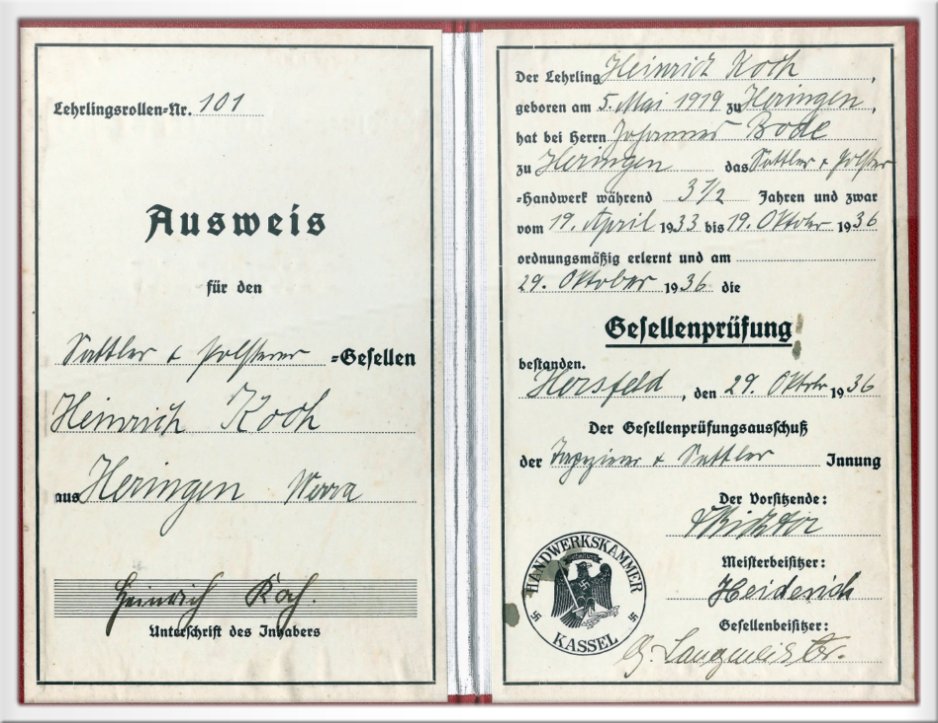 Lehrlingsrollen-Nr. 101
Ausweis
für den
Sattler & Polsterer -Gesellen
Heinrich Koch
aus Heringen Werra
Heinrich Koch.
Unterschrift des Inhabers
Der Lehrling Heinrich Koch,
geboren am 5. Mai 1919 zu Heringen,
hat bei Herrn Johannes Bode
zu Heringen das Sattler & Polster
-Handwerk während 3 1/2 Jahren und zwar
vom 19. April 1933 bis 19. Oktober 1936
ordnungsmäßig erlernt und am
29. Oktober 1936 die
Gesellenprüfung
bestanden.
Hersfeld, den 29. Oktober 1936
Der Gesellenprüfungsausschuß
der Tapezierer & Sattler Innung
Der Vorsitzende:
Meisterbeisitzer:
Heiderich
Gesellenbeisitzer:
Langmeister.
HANDWERKSKAMMER
KASSEL